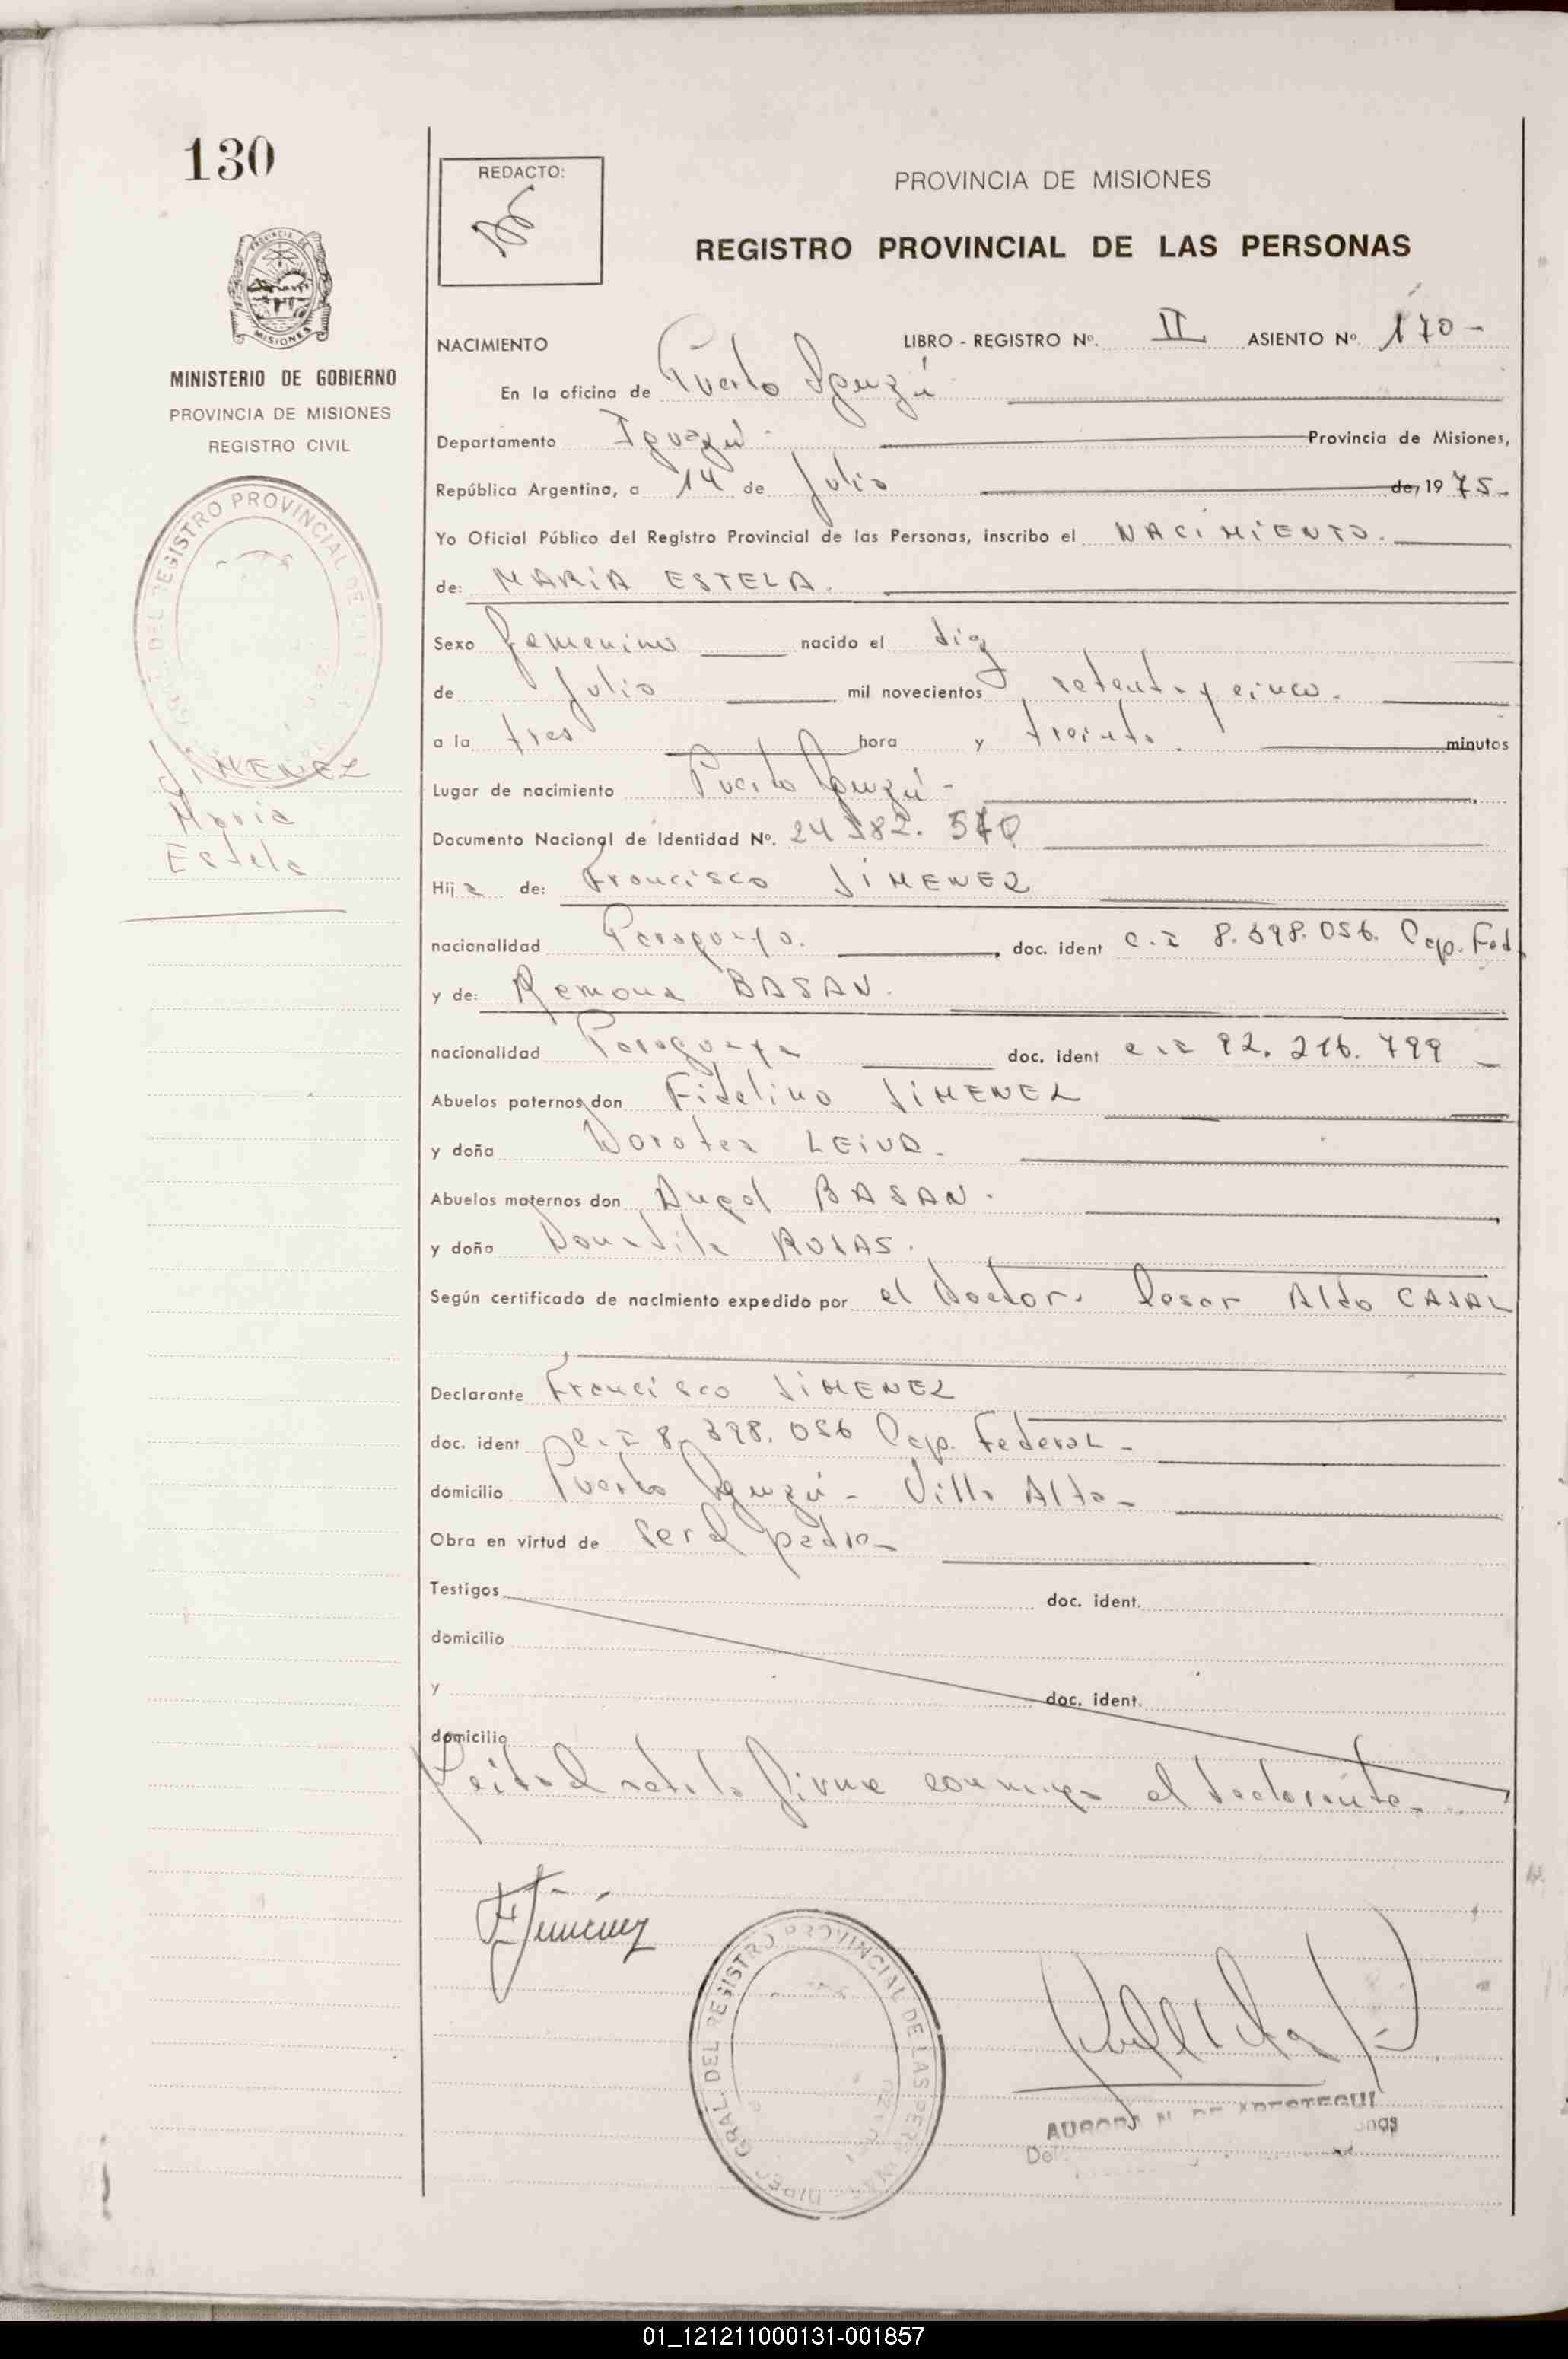 130
REDACTO:
PROVINCIA DE MISIONES
REGISTRO PROVINCIAL DE LAS PERSONAS
PROVINCIA DE
MISIONES
MINISTERIO DE GOBIERNO
PROVINCIA DE MISIONES
REGISTRO CIVIL
DEL REGISTRO PROVINCIAL DE
JIMENEZ
Maria
Estela
NACIMIENTO LIBRO - REGISTRO Nº. II ASIENTO Nº. 170 -
En la oficina de Puerto Iguazú
Departamento Iguazú - Provincia de Misiones,
República Argentina, a 14 de Julio de, 1975.
Yo Oficial Público del Registro Provincial de las Personas, inscribo el NACIMIENTO.
de: MARIA ESTELA.
Sexo femenino nacido el diez
de Julio mil novecientos setenta y cinco.
a la tres hora y treinta. minutos
Lugar de nacimiento Puerto Iguazú -
Documento Nacional de Identidad Nº. 24
Hija de: Francisco JIMENEZ
nacionalidad Paraguayo. doc. ident C.I 8.398.056. Cap. Fed.
y de: Ramona BASAN.
nacionalidad Paraguaya doc. ident C.I 92. 216. 799 -
Abuelos paternos don Fidelino JIMENEZ
y doña Dorotea LEIVA.
Abuelos maternos don Angel BASAN.
y doña Donatila ROJAS.
Según certificado de nacimiento expedido por el Doctor. Cesar Aldo CASAL
Declarante Francisco JIMENEZ
doc. ident C.I 8.398.056 Cap. Federal -
domicilio Puerto Iguazú - Villa Alta -
Obra en virtud de ser el padre -
Testigos doc. ident.
domicilio
y doc. ident.
domicilio
Leida el acta la firma conmigo el declarante.
FJimenez
DIREC. GRAL. DEL REGISTRO PROVINCIAL DE LAS PERSONAS
AURORA N. DE ARESTEGUI
01_121211000131-001857